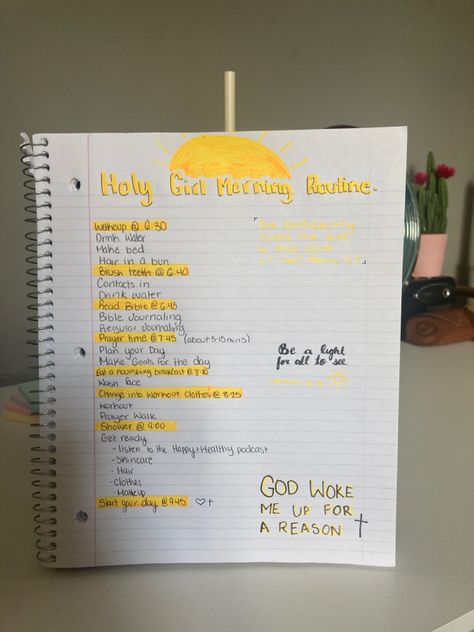 Holy Girl Morning Routine.
Wakeup @ 6:30
Drink Water
Make bed
Hair in a bun
Brush teeth @ 6:40
Contacts in
Drink water
Read Bible @ 6:45
Bible Journaling
Regular Journaling
Prayer time @ 7:45 (about 5-15 mins)
Plan your Day
Make Goals for the day
Eat a nourishing breakfast @ 8:10
Wash face
Change into workout clothes @ 8:25
Workout
Prayer Walk
Shower @ 9:00
Get ready
- listen to the Happy+Healthy podcast
- Skincare
- Hair
- Clothes
- Makeup
Start your day @ 9:45
Be a light
for all to see
GOD WOKE
ME UP FOR
A REASON